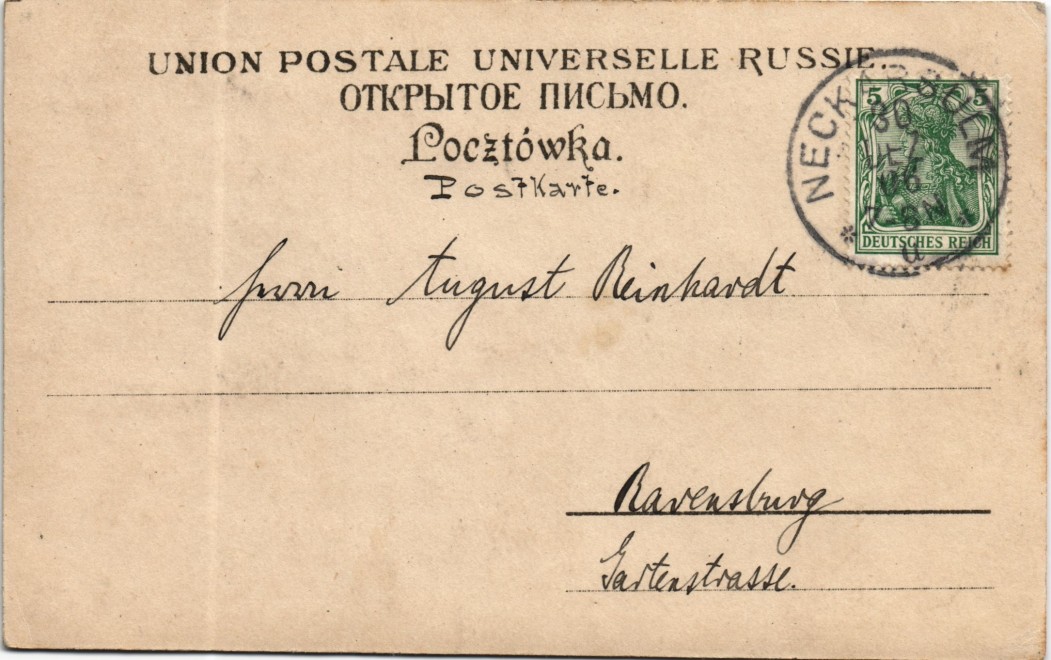 UNION POSTALE UNIVERSELLE RUSSIE.
ОТКРЫТОЕ ПИСЬМО.
Pocztówka.
Postkarte.
5 5
DEUTSCHES REICH
NECKARSULM
30
DEZ
06
7-8N
a
Herrn August Reinhardt
Ravensburg
Gartenstrasse.